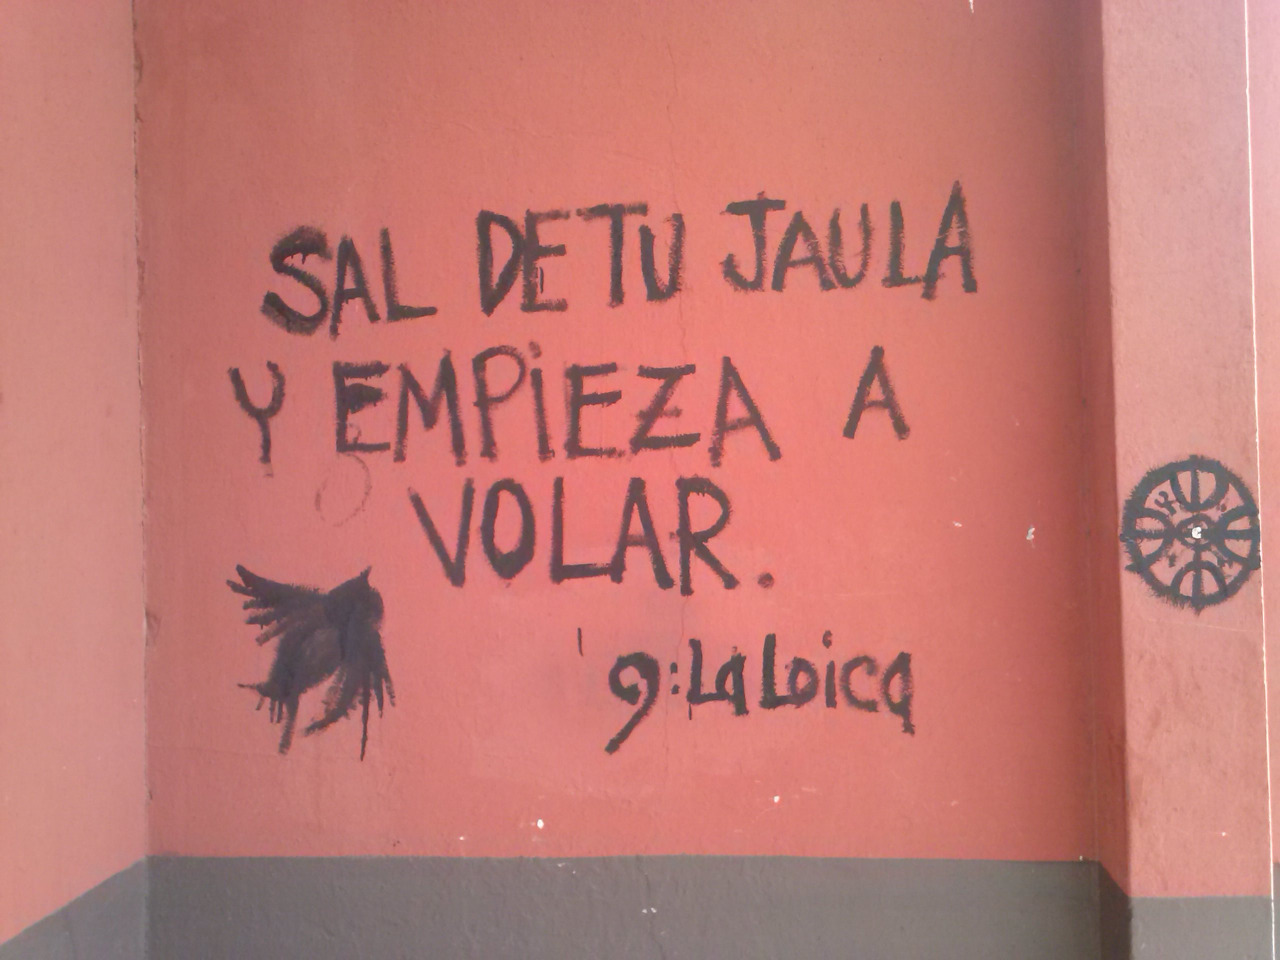 SAL DE TU JAULA
Y EMPiEZA A
VOLAR.
9: La Loica